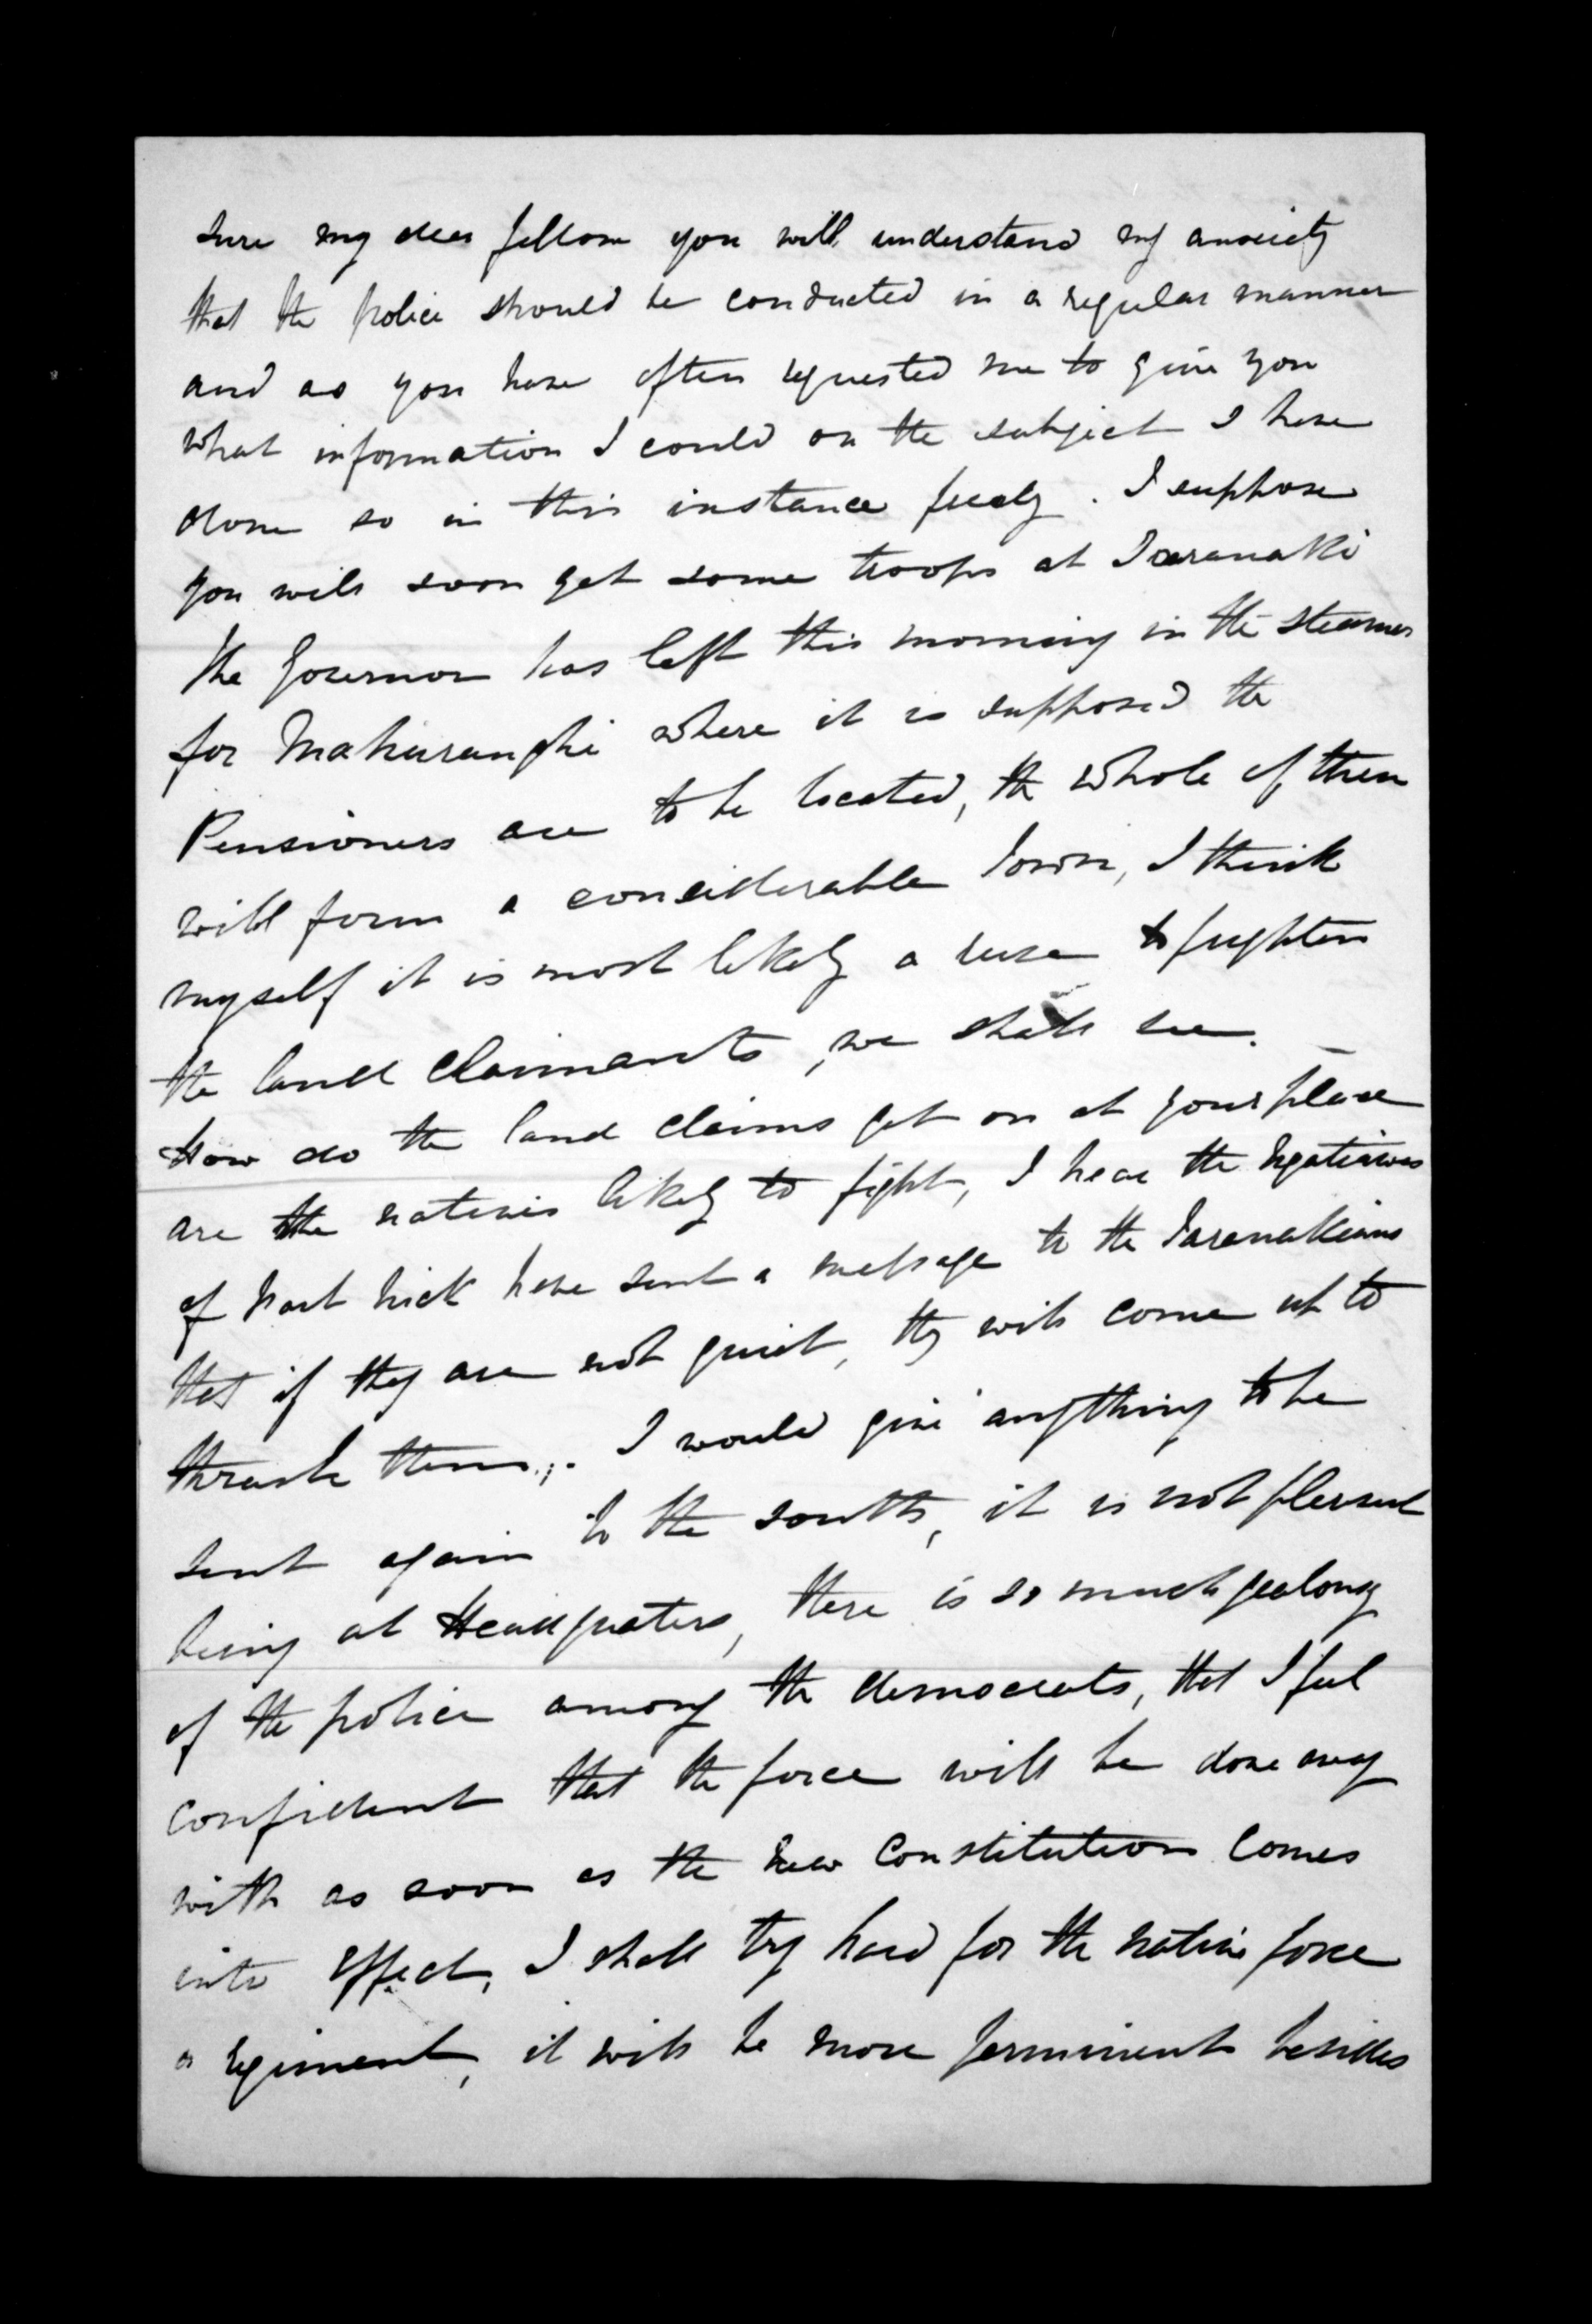 sure my dear fellow you will understand my anxiety
that the police should be conducted in a regular manner
and as you have often requested me to give you
what information I could on the subject I have
done so in this instance freely. I suppose
you will soon get some troops at Taranaki
the Governor has left this morning in the steamer
for Mahuranghi where it is supposed the
Pensioners are to be located, the whole of them
will form a considerable Town, I think
myself it is most likely a ruse to frighten
the land claimants, we shall see. —
How do the land claims get on at your place
are the natives likely to fight, I hear the Ngatiawas
of Port Nick have sent a message to the Taranakians
that if they are not quiet, they will come up to
thrash them. I would give anything to be
sent again to the south, it is not pleasant
being at Headquaters, there is so much jealousy
of the police among the democrats, that I feel
confident that the force will be done away
with as soon as the New Constitution Comes
into effect, I shall try hard for the native force
or regiment, it will be more perminent besides